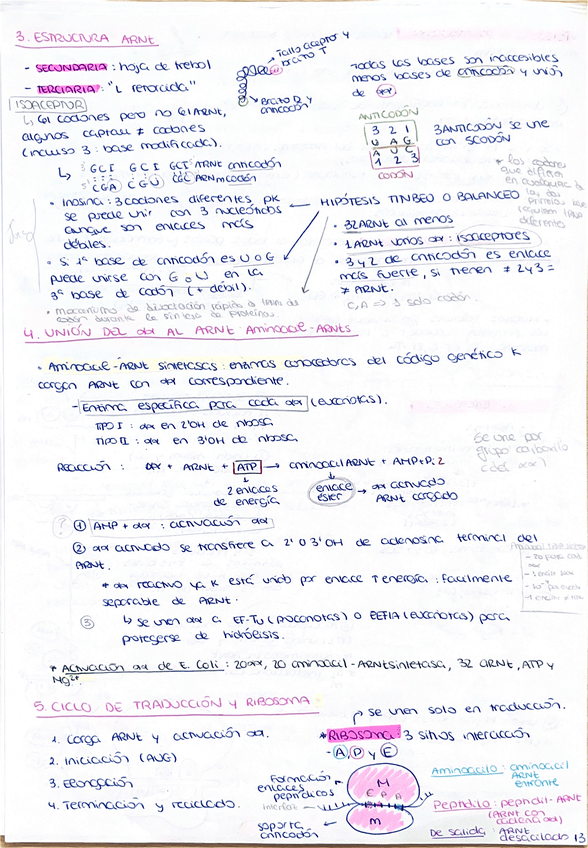 3. ESTRUCTURA ARNt
- SECUNDARIA : hoja de trebol
- TERCIARIA : "L retorcida"
Tallo aceptor y
brazo T
Brazo D y
anticodón
Todas las bases son inaccesibles
menos bases de anticodón y unión
de aa
ISOACEPTOR
↳ 61 codones pero no 61 ARNt,
algunos captan ≠ codones
(incluso 3 : base modificada).
↳ GCI GCI GCI ARNt anticodón
CGA CGU CGC ARNm codón
ANTICODÓN
3 2 1
U A G
A U C
1 2 3
CODÓN
3'ANTICODÓN se une
con 5'CODÓN
* los codones
que difieren
en
las dos
primeras bases
requieren ARNt
diferentes
• Inosina : 3 codones diferentes pk
se puede unir con 3 nucleótidos
aunque son enlaces más
débiles.
• Si 1ª base de anticodón es U o G
puede unirse con G o U en la
3ª base de codón (+ débil).
• Mecanismo de disociación rápida de ARNt de
codón durante la síntesis de proteína.
HIPÓTESIS TIMBEO O BALANCEO
• 32 ARNt al menos
• 1 ARNt varios aa : isoaceptores
• 3 y 2 de anticodón es enlace
más fuerte, si tienen ≠ 2 y 3 =
≠ ARNt.
C, A => 1 solo codón.
4. UNIÓN DEL aa AL ARNt : Aminoacil-ARNts
• Aminoacil-ARNt sintetasas : enzimas conocedoras del código genético k
cargan ARNt con aa correspondiente.
- Enzima específica para cada aa (eucariotas).
TIPO I : aa en 2'OH de ribosa
TIPO II : aa en 3'OH de ribosa
Reacción : aa + ARNt + ATP → aminoacil ARNt + AMP + Pi 2
2 enlaces
de energía
enlace
éster → aa activado
ARNt cargado
Se une por
grupo carboxilo
(del aa)
? ① AMP + aa : activación aa
② aa activado se transfiere a 2' o 3' OH de adenosina terminal del
ARNt.
* aa reactivo ya k está unido por enlace ↑ energía : facilmente
separable de ARNt.
③ ↳ se unen aa a EF-Tu (procariotas) o EEF1A (eucariotas) para
protegerse de hidrólisis.
* Activación aa de E. Coli : 20 aa, 20 aminoacil-ARNt sintetasa, 32 ARNt, ATP y
Mg²⁺.
5. CICLO DE TRADUCCIÓN y RIBOSOMA
1. Carga ARNt y activación aa.
2. Iniciación (AUG)
3. Elongación
4. Terminación y reciclado.
se unen solo en traducción.
*RIBOSOMA : 3 sitios interacción
- A, P y E
Formación
enlaces
peptídicos
interfaz
soporta
anticodón
M
E P A
m
Aminoacilo : aminoacil
ARNt
entrante
Peptidilo : peptidil-ARNt
(ARNt con
cadena aa)
De salida : ARNt
desacilado
13